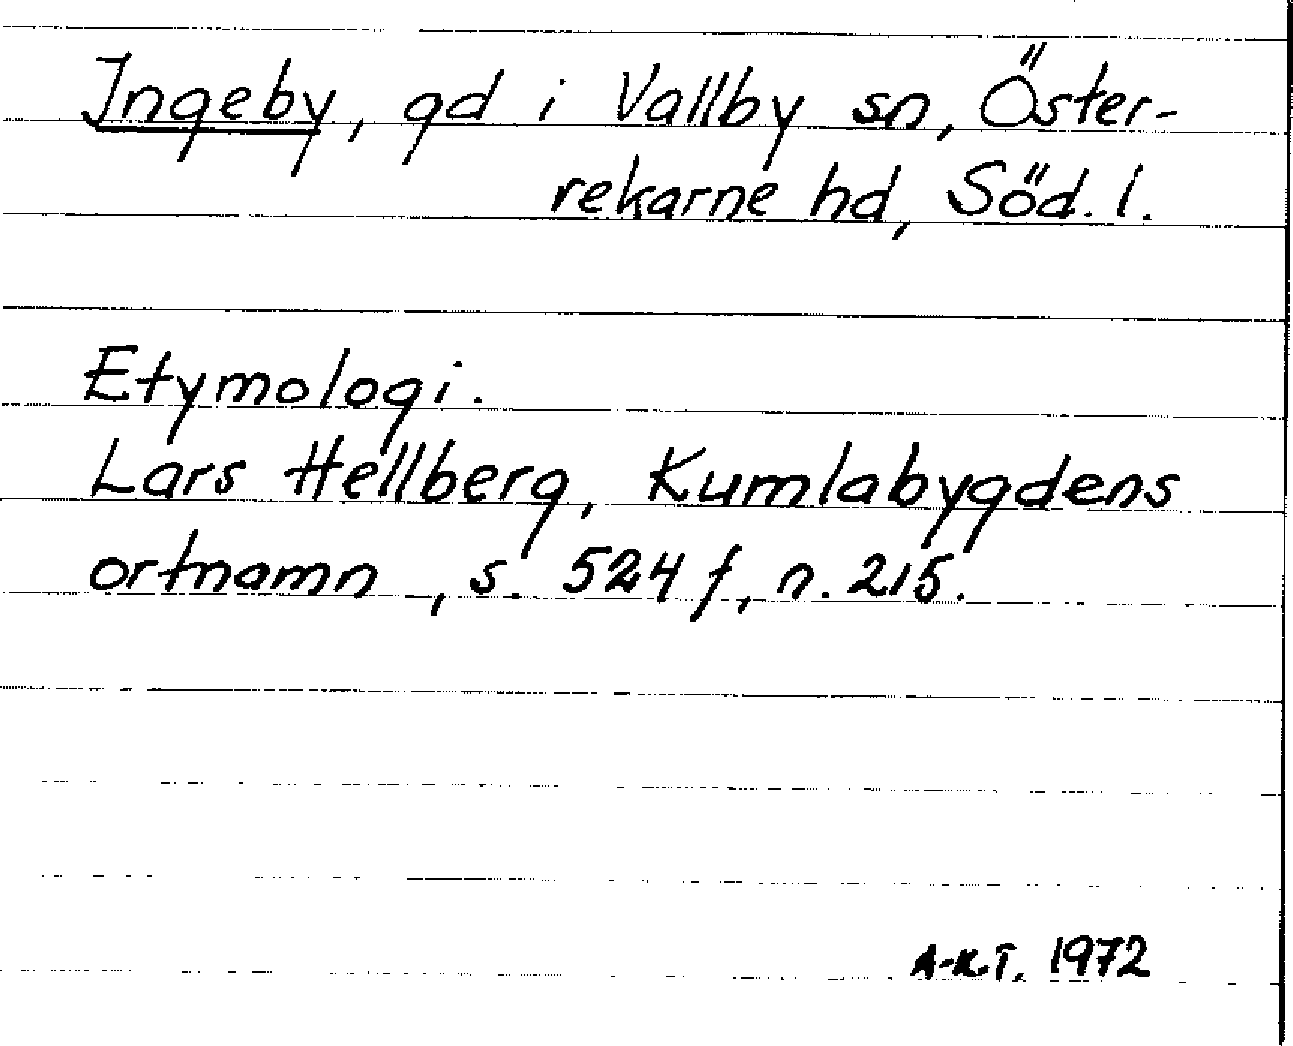 Ingeby, gd i Vallby sn, Öster-
rekarne hd, Söd. l.
Etymologi.
Lars Hellberg, Kumlabygdens
ortnamn, s. 524 f, n. 215.
A-K.T. 1972